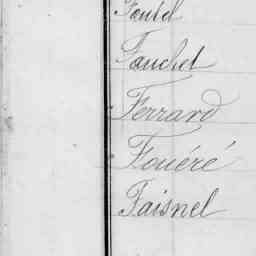 Foutel
Fauchet
Ferrard
Fouéré
Faisnel